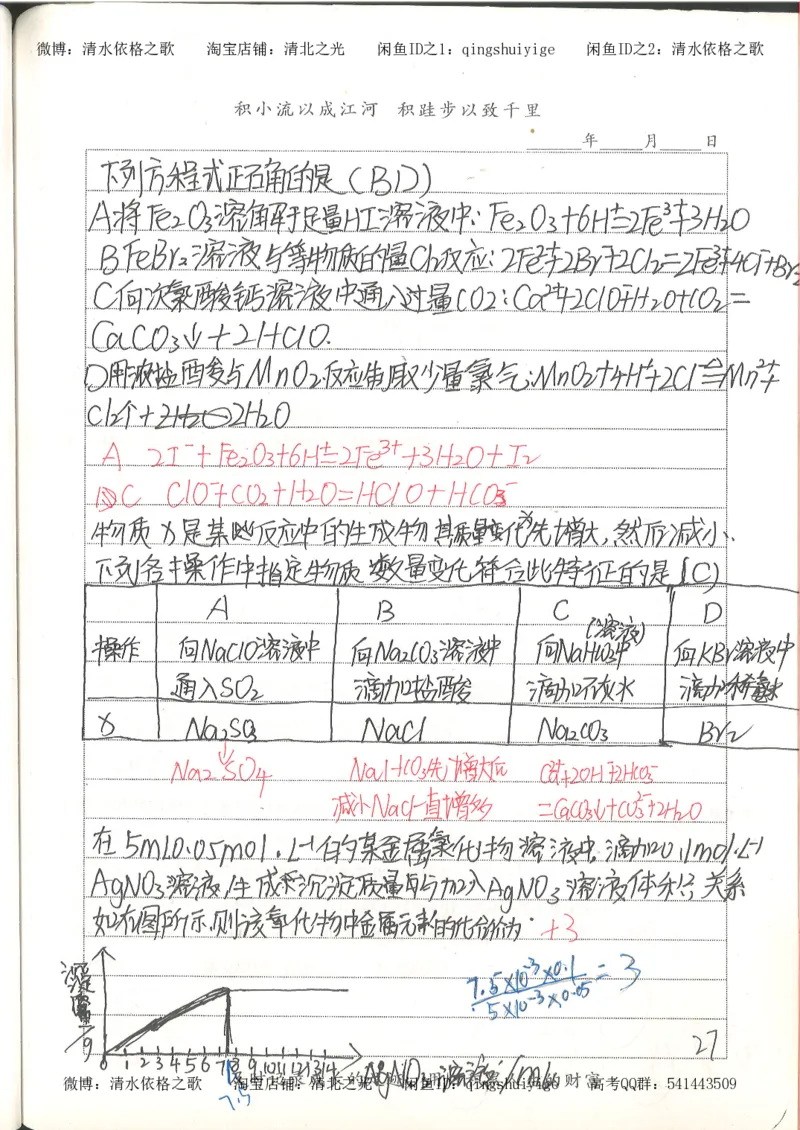 微博：清水依格之歌 淘宝店铺：清北之光 闲鱼ID之1：qingshuiyige 闲鱼ID之2：清水依格之歌
积小流以成江河 积跬步以致千里
年 月 日
下列方程式正确的是（BD）
A将Fe₂O₃溶解于足量HI溶液中：Fe₂O₃+6H⁺=2Fe³⁺+3H₂O
BFeBr₂溶液与等物质的量Cl₂反应：2Fe²⁺+2Br⁻+2Cl₂=2Fe³⁺+4Cl⁻+Br₂
C向次氯酸钙溶液中通入过量CO₂：Ca²⁺+2ClO⁻+H₂O+CO₂=
CaCO₃↓+2HClO.
D用浓盐酸与MnO₂反应制取少量氯气：MnO₂+4H⁺+2Cl⁻≜Mn²⁺+
Cl₂↑+2H₂O
A 2I⁻+Fe₂O₃+6H⁺=2Fe³⁺+3H₂O+I₂
C ClO⁻+CO₂+H₂O=HClO+HCO₃⁻
物质X是某反应中的生成物其质量变化为先增大，然后减小.
下列各操作中指定物质X数量变化符合此特征的是（C）
A B C D
操作 向NaClO溶液中 向Na₂CO₃溶液中 向NaHCO₃(溶液)中 向KBr溶液中
通入SO₂ 滴加盐酸 滴加石灰水 滴加稀氯水
X Na₂SO₃ NaCl Na₂CO₃ Br₂
Na₂SO₄ NaHCO₃先增大后 Ca²⁺+2OH⁻+2HCO₃⁻
减小NaCl一直增多 =CaCO₃↓+CO₃²⁻+2H₂O
在5ml0.05mol·L⁻¹的某金属氯化物溶液中,滴加0.1mol·L⁻¹
AgNO₃溶液,生成沉淀质量与加入AgNO₃溶液体积关系
如右图所示.则该氯化物中金属元素的化合价为：+3
沉淀质量/g
7.5×10⁻³×0.1
5×10⁻³×0.05
=3
0 1 2 3 4 5 6 7 8 9 10 11 12 13 14 AgNO₃溶液/mL
7.5
27
微博：清水依格之歌 淘宝店铺：清北之光 闲鱼ID：qingshuiyige 高考QQ群：541443509